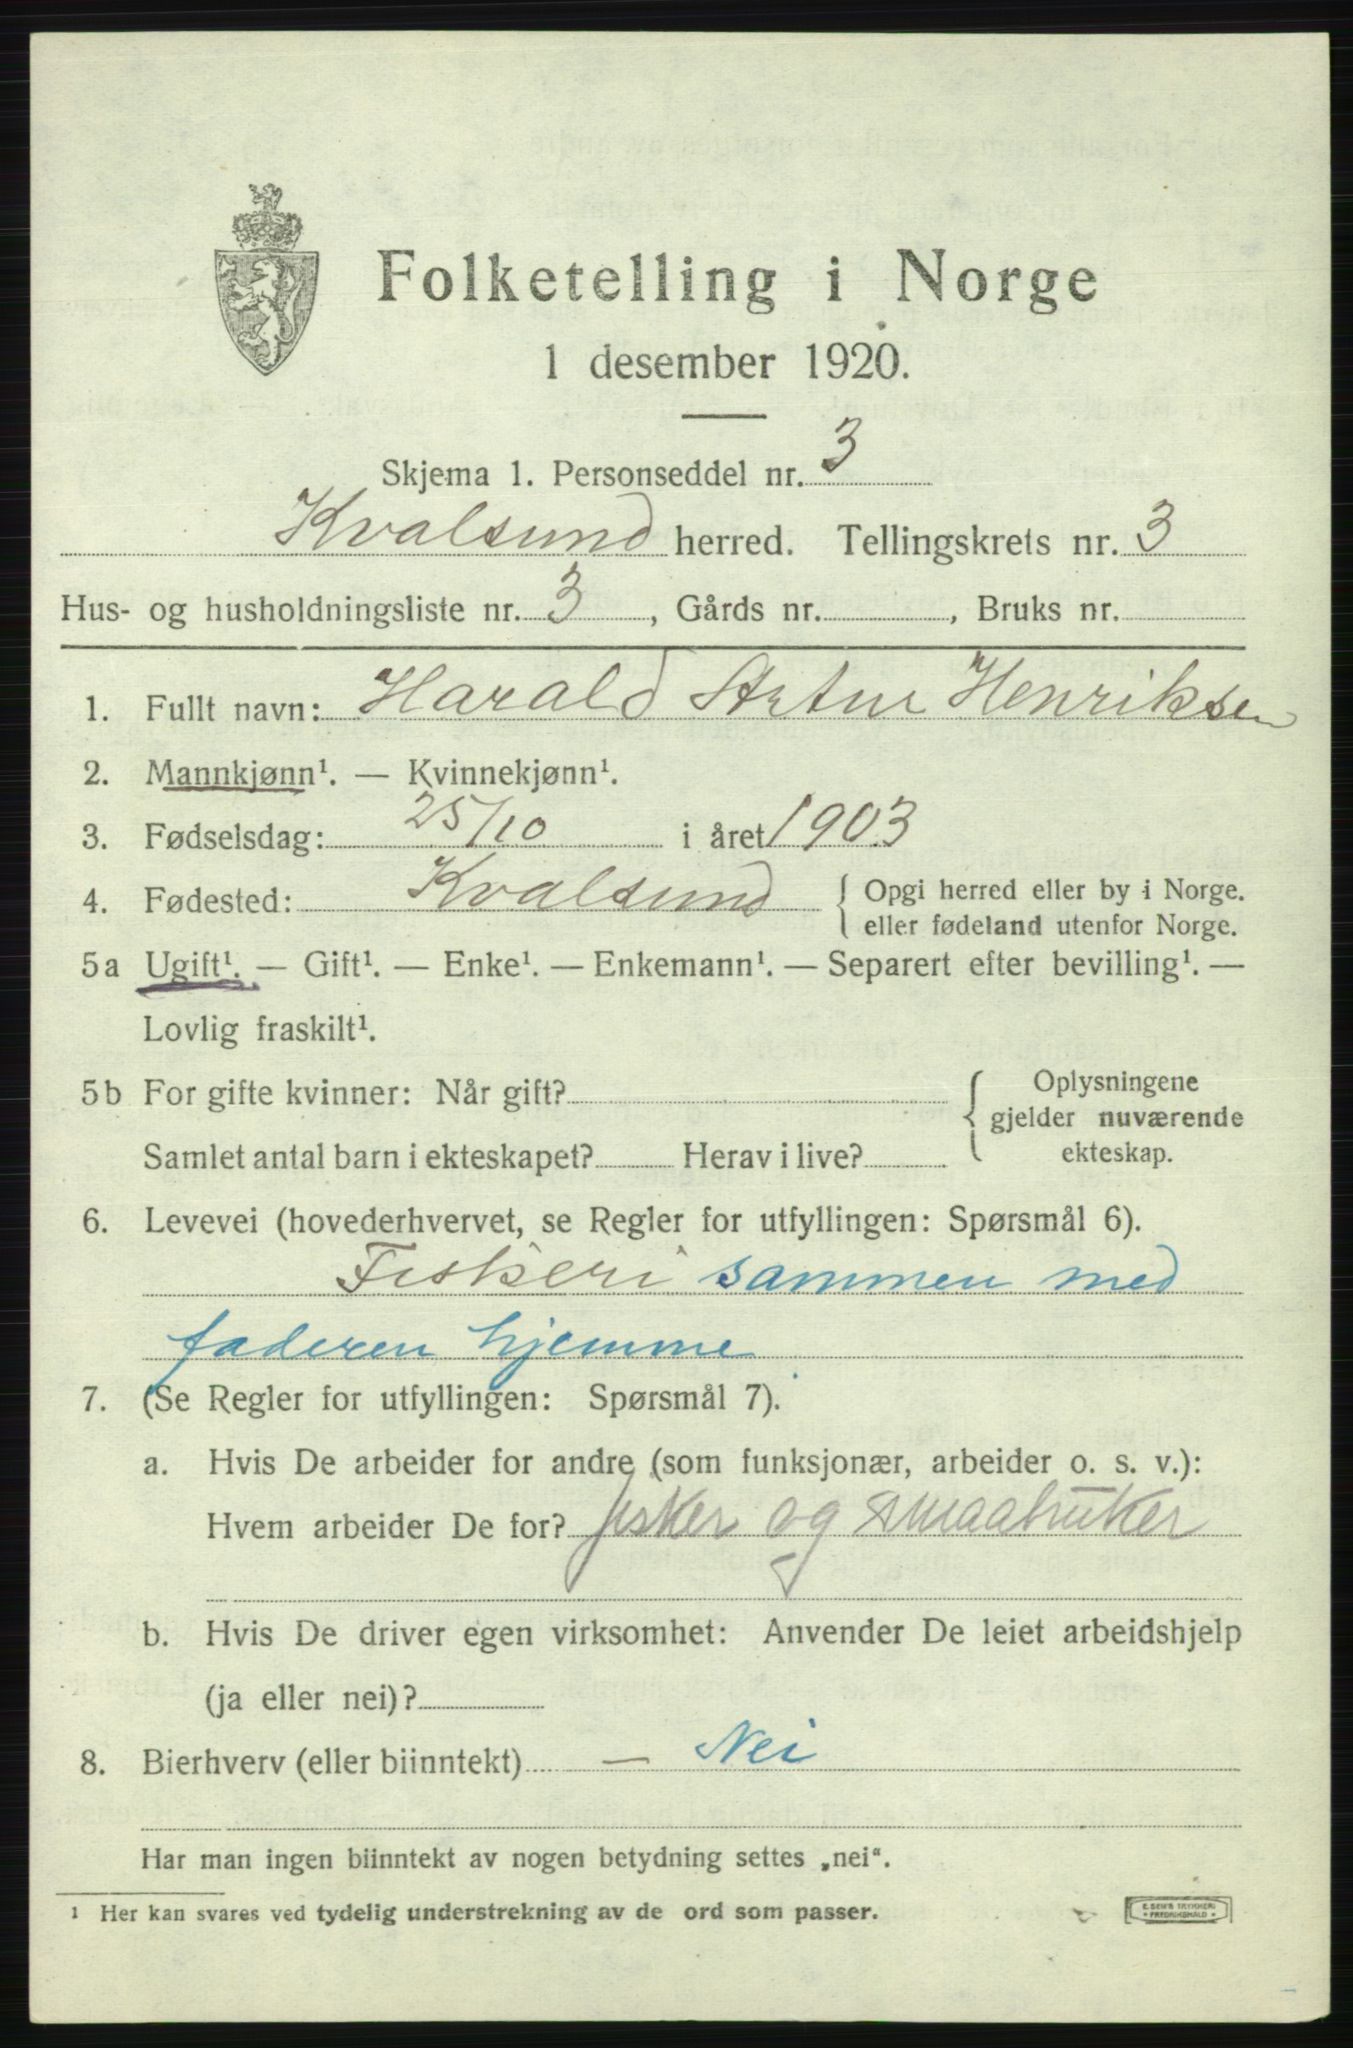 Folketelling i Norge
1 desember 1920.
Skjema 1. Personseddel nr. 3
Kvalsund herred. Tellingskrets nr. 3
Hus- og husholdningsliste nr. 3, Gårds nr. , Bruks nr.
1. Fullt navn: Harald Artur Henriksen
2. Mannkjønn¹. — Kvinnekjønn¹.
3. Fødselsdag: 25/10 i året 1903
4. Fødested: Kvalsund { Opgi herred eller by i Norge.
eller fødeland utenfor Norge.
5a Ugift¹. — Gift¹. — Enke¹. — Enkemann¹. — Separert efter bevilling¹. —
Lovlig fraskilt¹.
5b For gifte kvinner: Når gift? { Oplysningene
gjelder nuværende
Samlet antal barn i ekteskapet? Herav i live? ekteskap.
6. Levevei (hovederhvervet, se Regler for utfyllingen: Spørsmål 6).
Fiskeri sammen med
faderen hjemme
7. (Se Regler for utfyllingen: Spørsmål 7).
a. Hvis De arbeider for andre (som funksjonær, arbeider o. s. v.):
Hvem arbeider De for? fisker og smaabruker
b. Hvis De driver egen virksomhet: Anvender De leiet arbeidshjelp
(ja eller nei)?
8. Bierhverv (eller biinntekt) — Nei
Har man ingen biinntekt av nogen betydning settes „nei“.
¹ Her kan svares ved tydelig understrekning av de ord som passer.
E. SEM'S TRYKKERI
FREDRIKSHALD